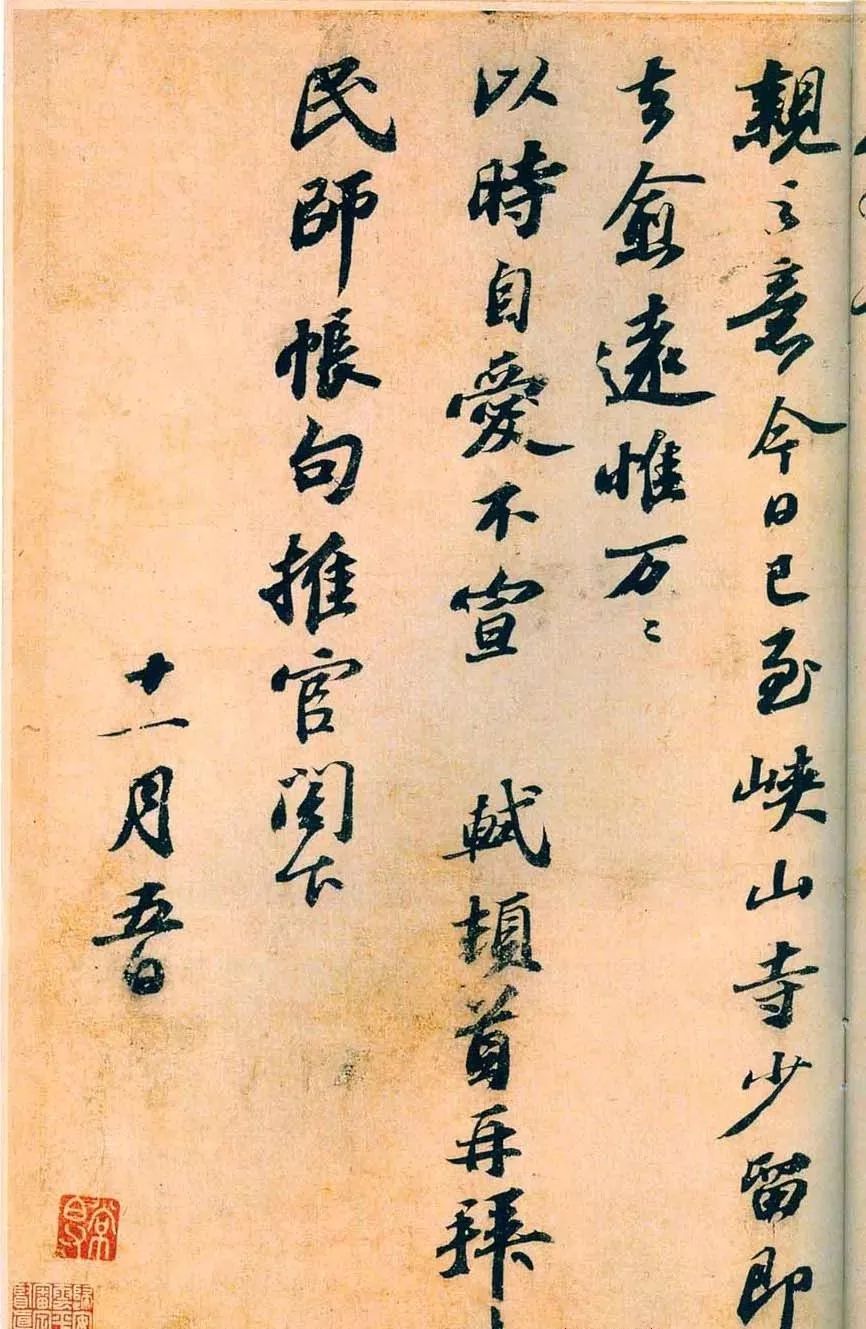 親之意今日已至峽山寺少留即
去愈遠惟万〻
以時自愛不宣 軾頓首再拜
民師帳句推官閣下
十一月五日